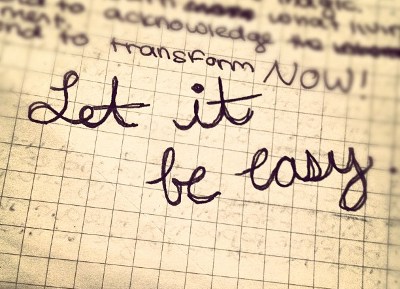 magic.
what
ment, acknowledge the
and to transform NOW!
Let it
be easy